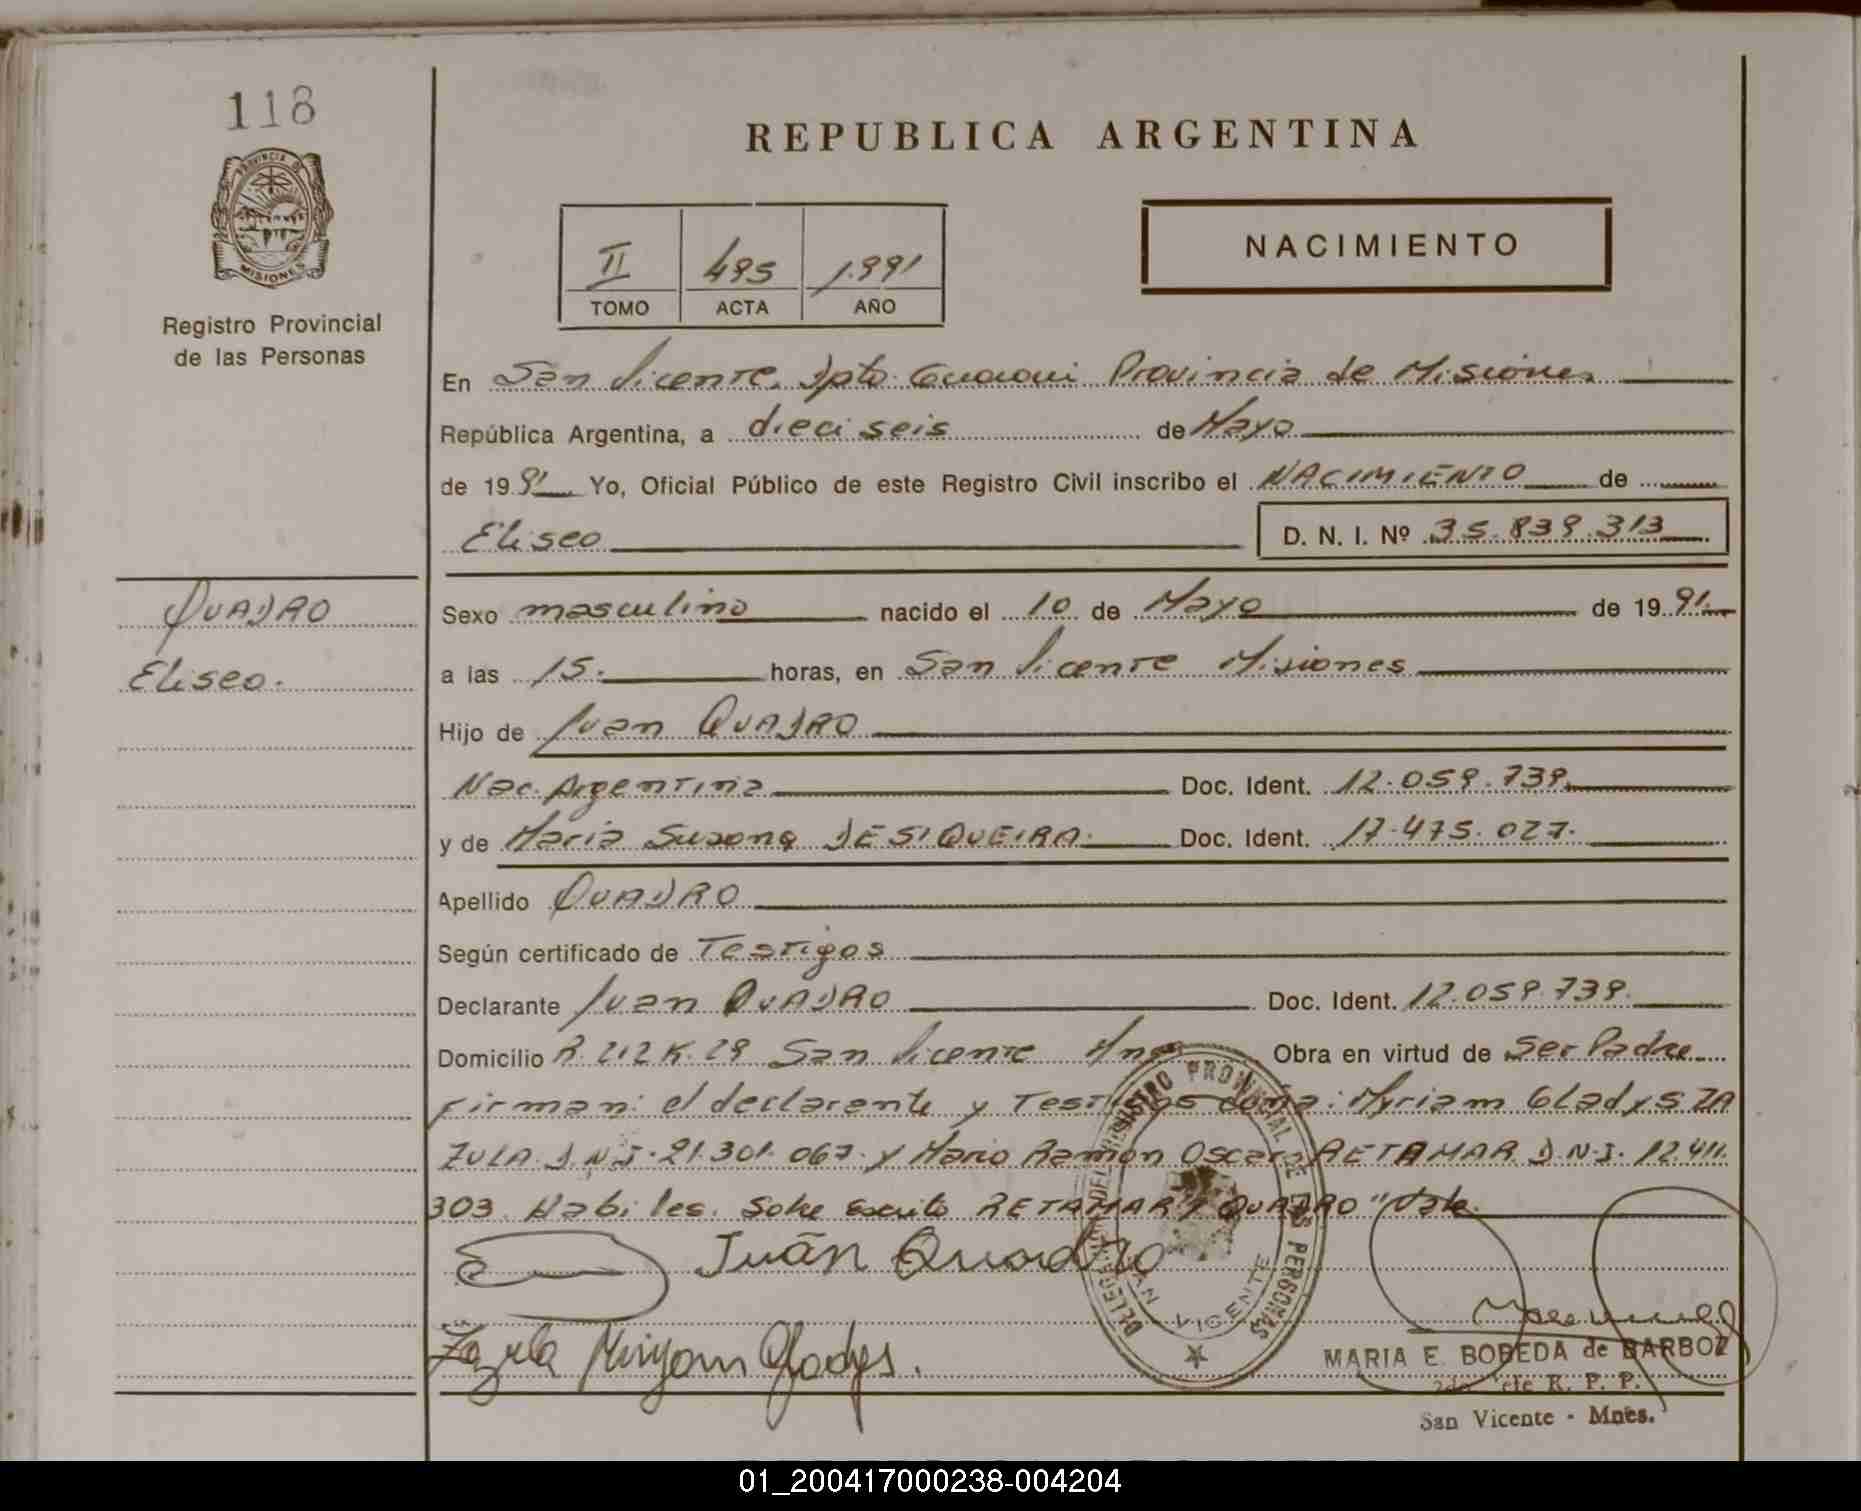 118
PROVINCIA DE
MISIONES
Registro Provincial
de las Personas
QUADRO
Eliseo.
REPUBLICA ARGENTINA
II 495 1.991
TOMO ACTA AÑO
NACIMIENTO
En San Vicente, Dpto Guarani Provincia de Misiones
República Argentina, a dieci seis de Mayo
de 1991 Yo, Oficial Público de este Registro Civil inscribo el NACIMIENTO de
Eliseo D. N. I. Nº 35.839.313
Sexo masculino nacido el 10 de Mayo de 1991
a las 15. horas, en San Vicente Misiones
Hijo de Juan QUADRO
Nac. Argentina Doc. Ident. 12.059.739
y de Maria Susana DE SIQUEIRA. Doc. Ident. 17.475.027.
Apellido QUADRO
Según certificado de Testigos
Declarante Juan QUADRO Doc. Ident. 12.059.739.
Domicilio R. 212 K. 29 San Vicente Mnes Obra en virtud de Ser Padre
Firman: el declarante y Testigos doña: Myriam Gladys ZA
ZULA D.N.I. 21.301.067. y Mario Ramón Oscar RETAMAR D.N.I. 12.411.
303. Habiles. Sobre Escrito RETAMAR y QUADRO "Vale.
Juán Quadro
Zazula Miryam Gladys.
DELEGACION DEL REGISTRO PROVINCIAL DE LAS PERSONAS
SAN VICENTE
MARIA E. BOBEDA de BARBOZ
2do. Jefe R. P. P.
San Vicente - Mnes.
01_200417000238-004204